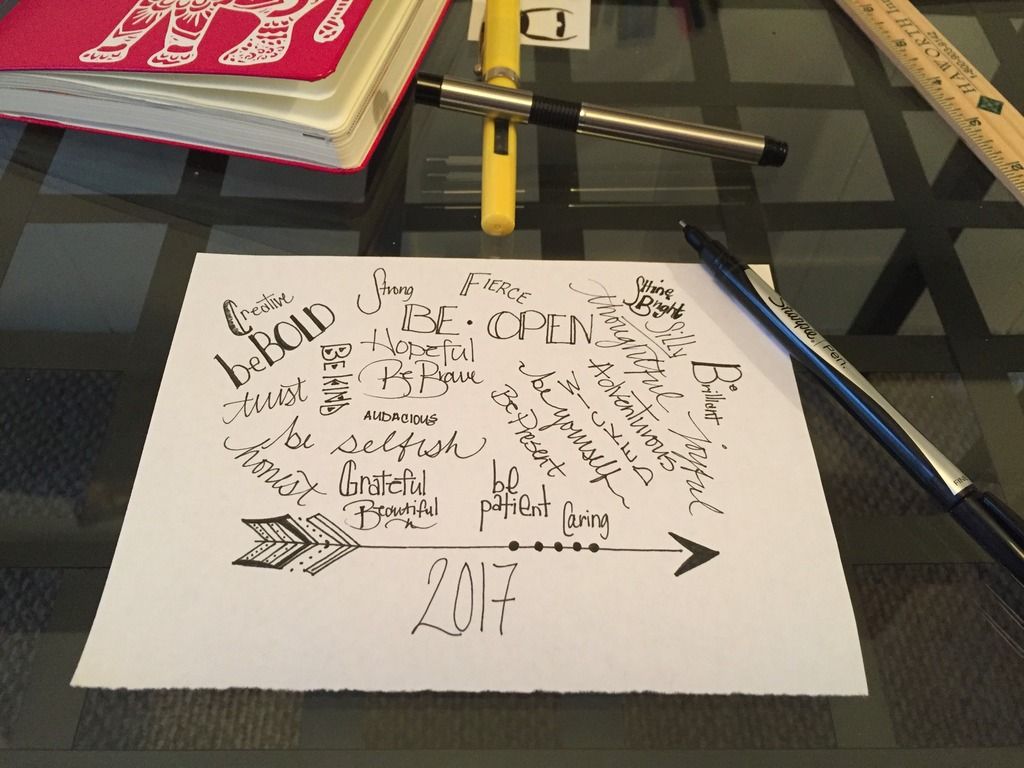 HAWORTH
Sharpie Pen
FINE
Creative
Strong
FIERCE
Shine
Bright
be BOLD
BE • OPEN
thoughtful
Silly
BE KIND
Hopeful
Be Brave
Brilliant
trust
AUDACIOUS
Adventurous
joyful
be selfish
be yourself
Be Present
honest
Grateful
Beautiful
be
patient
Caring
2017